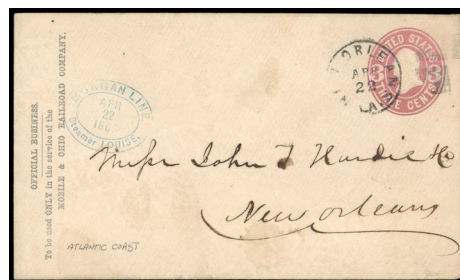 OFFICIAL BUSINESS.
To be used ONLY in the service of the
MOBILE & OHIO RAILROAD COMPANY.
MORGAN LINE
APR
22
Steamer LOUISE.
N. ORLEANS
LA.
APR
22
UNITED STATES
3 3
THREE CENTS
Messr John T Hardie & Co
New Orleans
ATLANTIC COAST